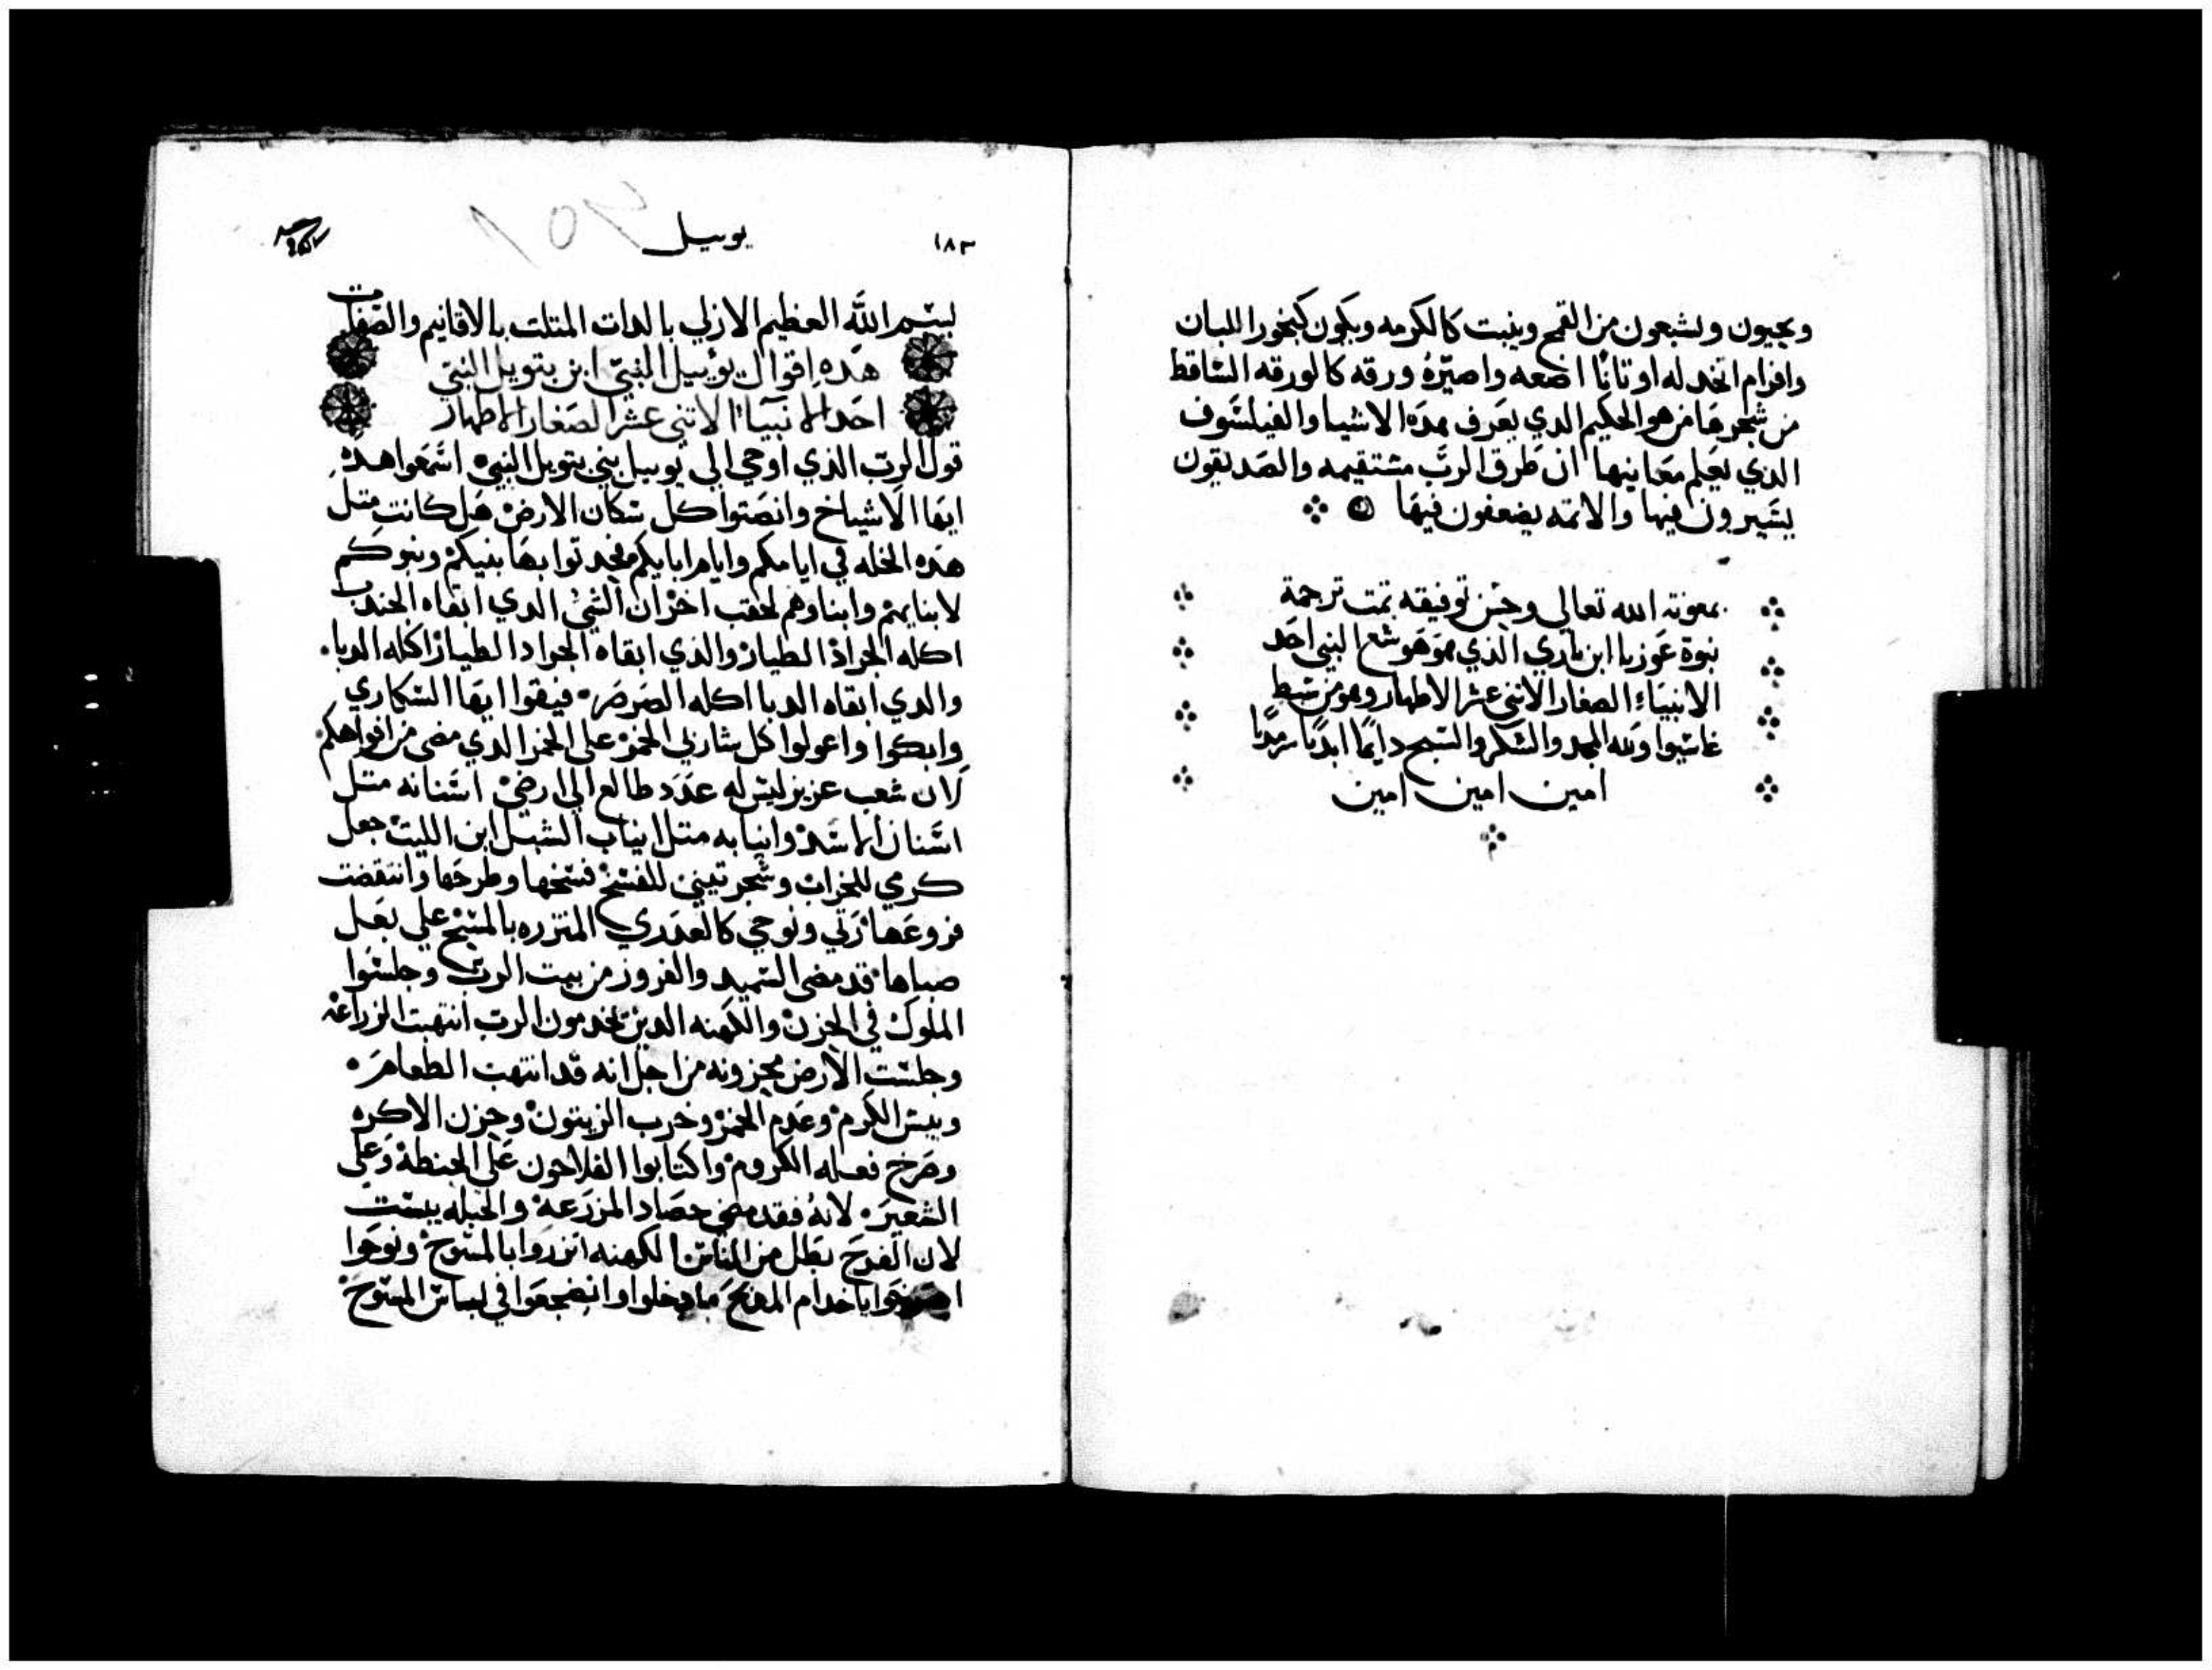 ويحيون ولشبعون من القمح وينبت كالكرمه ويكون كبخور اللبان
وافرام اتخد له اوتانًا اضعه واصيّرهُ ورقه كالورقه الساقط
من شجرها من هو الحكيم الدي يعرف هده الاشيا والفيلسوف
الدي يعلم معاينها ان طرق الربّ مستقيمه والصديقون
يسيرون فيها والاتمه يضعفون فيها
بمعونة الله تعالي وحسن توفيقه تمت ترجمة
نبوة عوزيا ابن باري الذي هو هوشع النبي احد
الانبياء الصغار الاتني عشر الاطهار وهو من سبط
ولله المجد والشكر والتسبيح دايمًا ابديًا سرمديًا
امين امين امين
١٨٣
يوييل
بسم الله العظيم الازلي بالدات المتلت بالاقانيم والصفات
هده اقوال يوييل النبيّ ابن بتويل النبيّ
احد الانبياء الاتني عشر الصغار الاطهار
قول الرب الذي اوحي الي يوييل بني بتويل النبي اسمعوا هده
ايها الاشياخ وانصتوا كل سكان الارض هل كانت متل
هده الخله في ايامكم وايام ابايكم فحدتوا بها بنيكم وبنوكم
لابنايهم وابناوهم لحقب اخر ان الشي الدي ابقاه الجندب
اكله الجراد الطيار والذي ابقاه الجراد الطيار اكله الدبا
والدي ابقاه الدبا اكله الصرصر فيقوا ايها السكاري
وابكوا واعولوا كل شاربي الخمر علي الخمر الدي مضي من افواهكم
لان شعب عزيز ليس له عدد طالع الي ارضي اسنانه متل
اسنان الاسد وانيابه متل انياب الشبل ابن الليت جعل
كرمي للخراب وشجر تيني للفسخ فسخها وطرحها وانتقضت
فروعها رتي ونوحي كالعدري المتزره بالمسح علي بعل
صباها قد مضي السميد والفرور من بيت الرب وجلسوا
الملوك في الحزن والكهنه الدين يخدمون الرب انتهبت الزراعه
وجلست الارض محزونه من اجل انه قد انتهب الطعام
ويبس الكرم وعدم الخمر وخرب الزيتون وحزن الاكره
وصرخ فعله الكروم واكتابوا الفلاحون علي الحنطة وعلي
الشعير لانهُ فقد مضي حصاد المزرعة والحبله يبست
لان الفرح بطل من الناس الكهنه اتزروا بالمسوح ونوحوا
يا خدام المدبح وانضجعوا في لباس المسوح